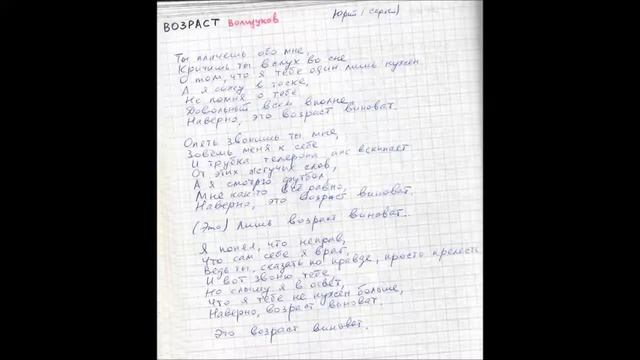 ВОЗРАСТ Волшуков (Юрий / Сергей)
Ты плачешь обо мне,
Кричишь ты вслух во сне
О том, что я тебе один лишь нужен
А я сижу в тоске,
Не помня о тебе
Довольный всем вполне,
Наверно, это возраст виноват.
Опять звонишь ты мне,
Зовёшь меня к себе
И трубка телефона аж вскипает
От этих жгучих слов,
А я смотрю футбол,
Мне как-то всё равно,
Наверно, это возраст виноват.
(Это) Лишь возраст виноват.
Я понял, что неправ,
Что сам себе я врал,
Ведь ты, сказать по правде, просто прелесть
И вот звоню тебе,
Но слышу я в ответ,
Что я тебе не нужен больше,
Наверно, возраст виноват.
Это возраст виноват.